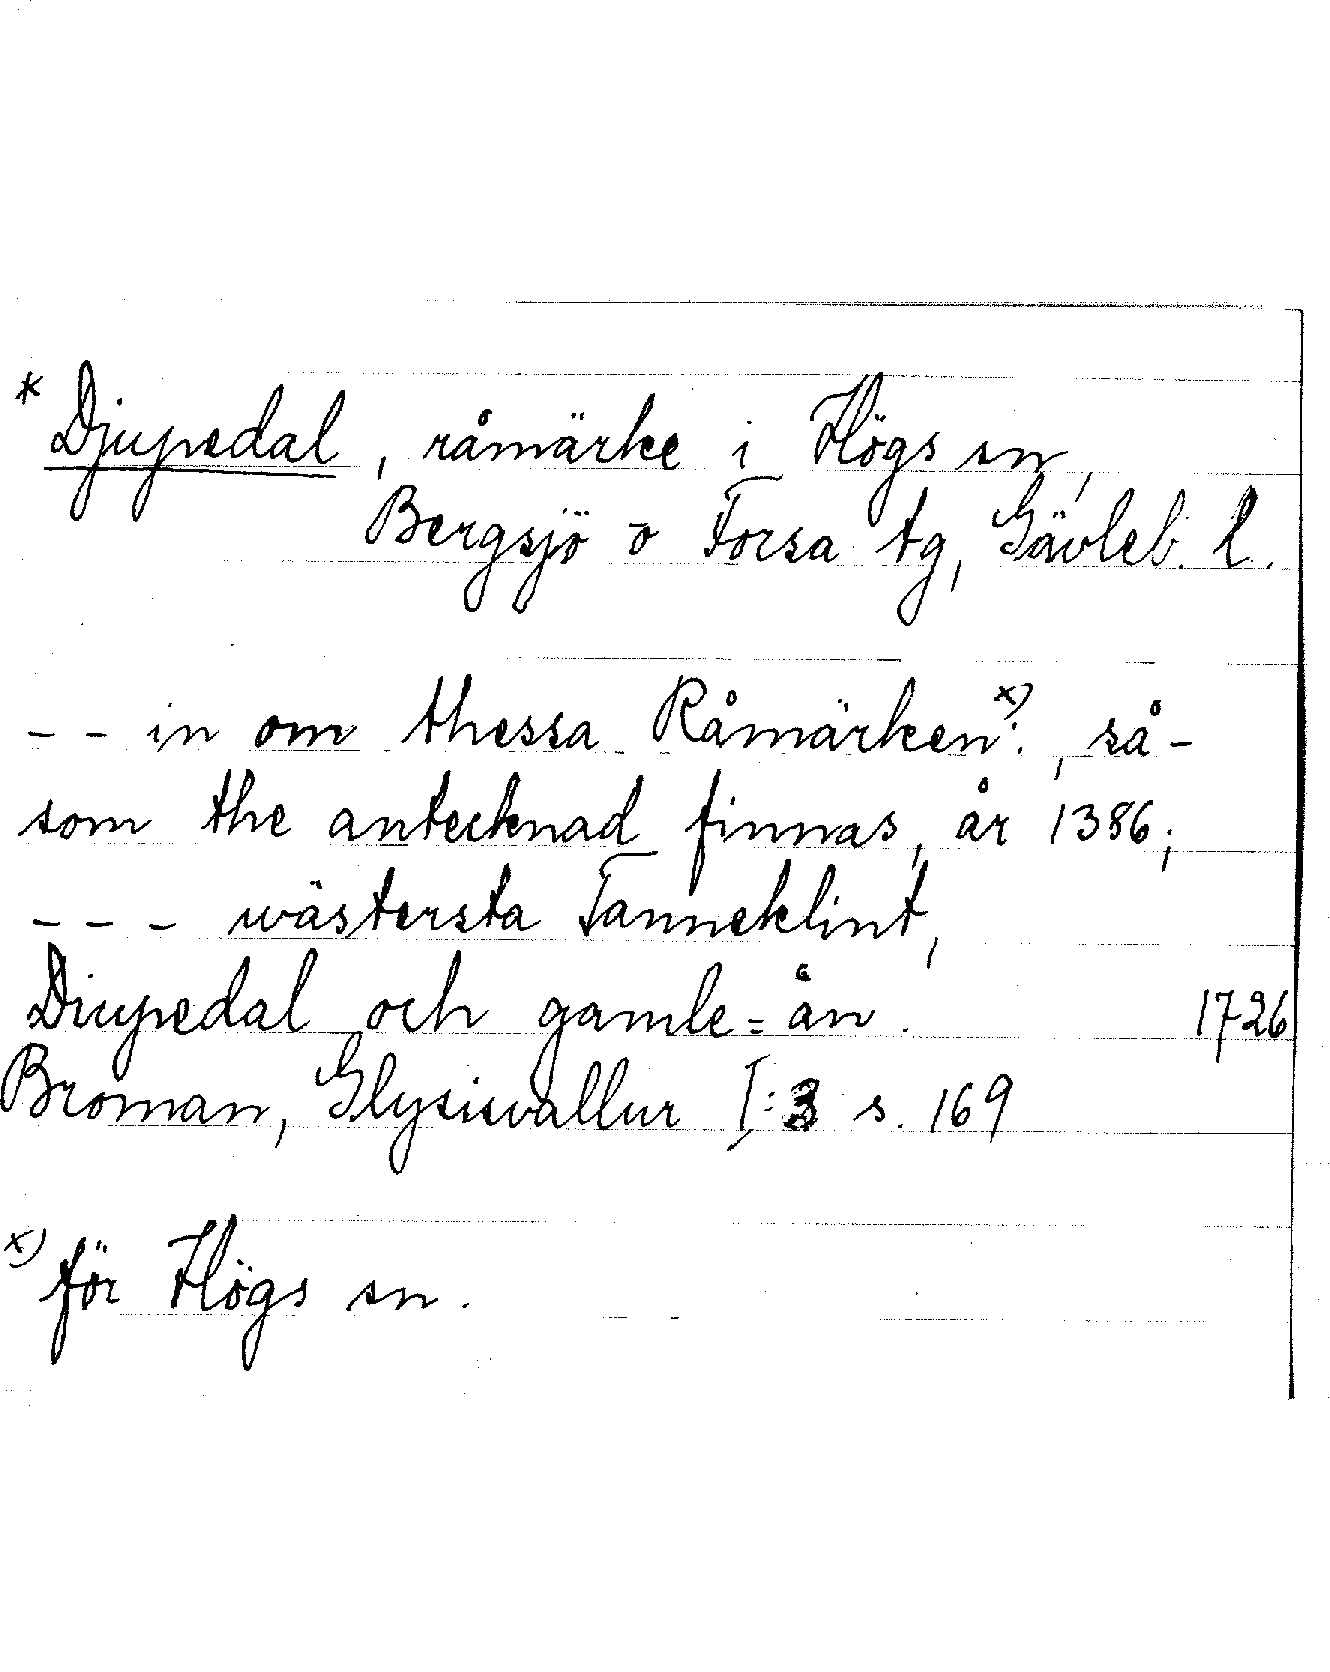 * Djupedal, råmärke i Högs sn,
Bergsjö o Forsa tg, Gävleb. l.
-- in om thessa Råmärken x): , så-
som the antecknad finnas, år 1386;
--- wästersta Tanneklint,
Diupedal och gamle=ån. 1726
Broman, Glysisvallur I:3 s. 169
x) för Högs sn.